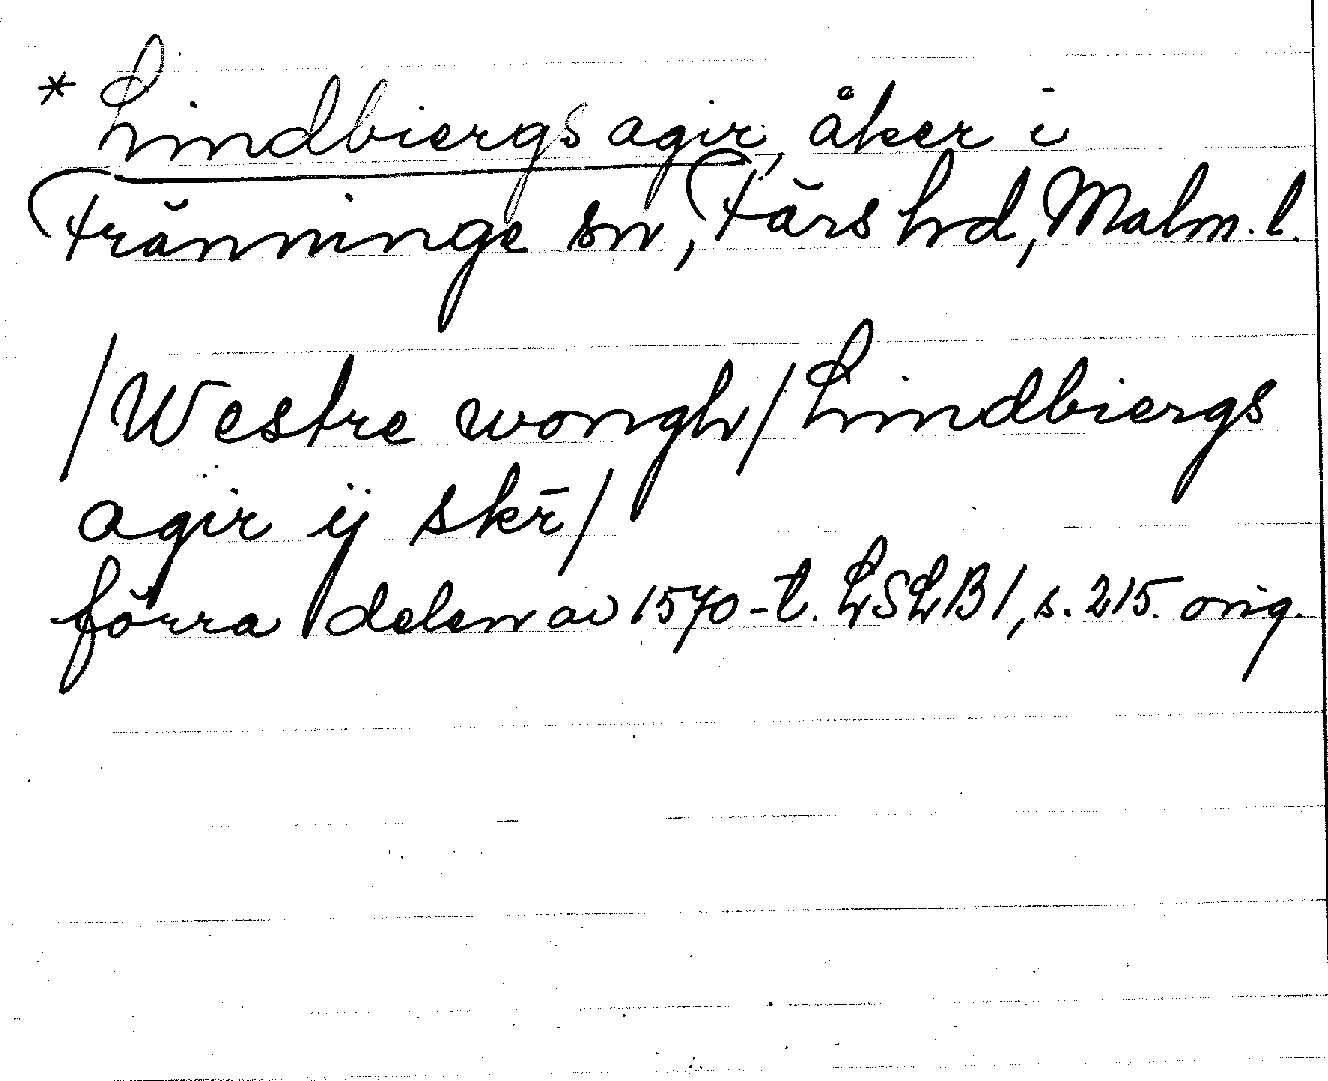 * Lindbiergs agir, åker i
Fränninge sn, Färs hd, Malm. l.
/Westre wongh/ Lindbiergs
agir ij skr̄/
förra delen av 1570-t. LSLB 1, s. 215. orig.